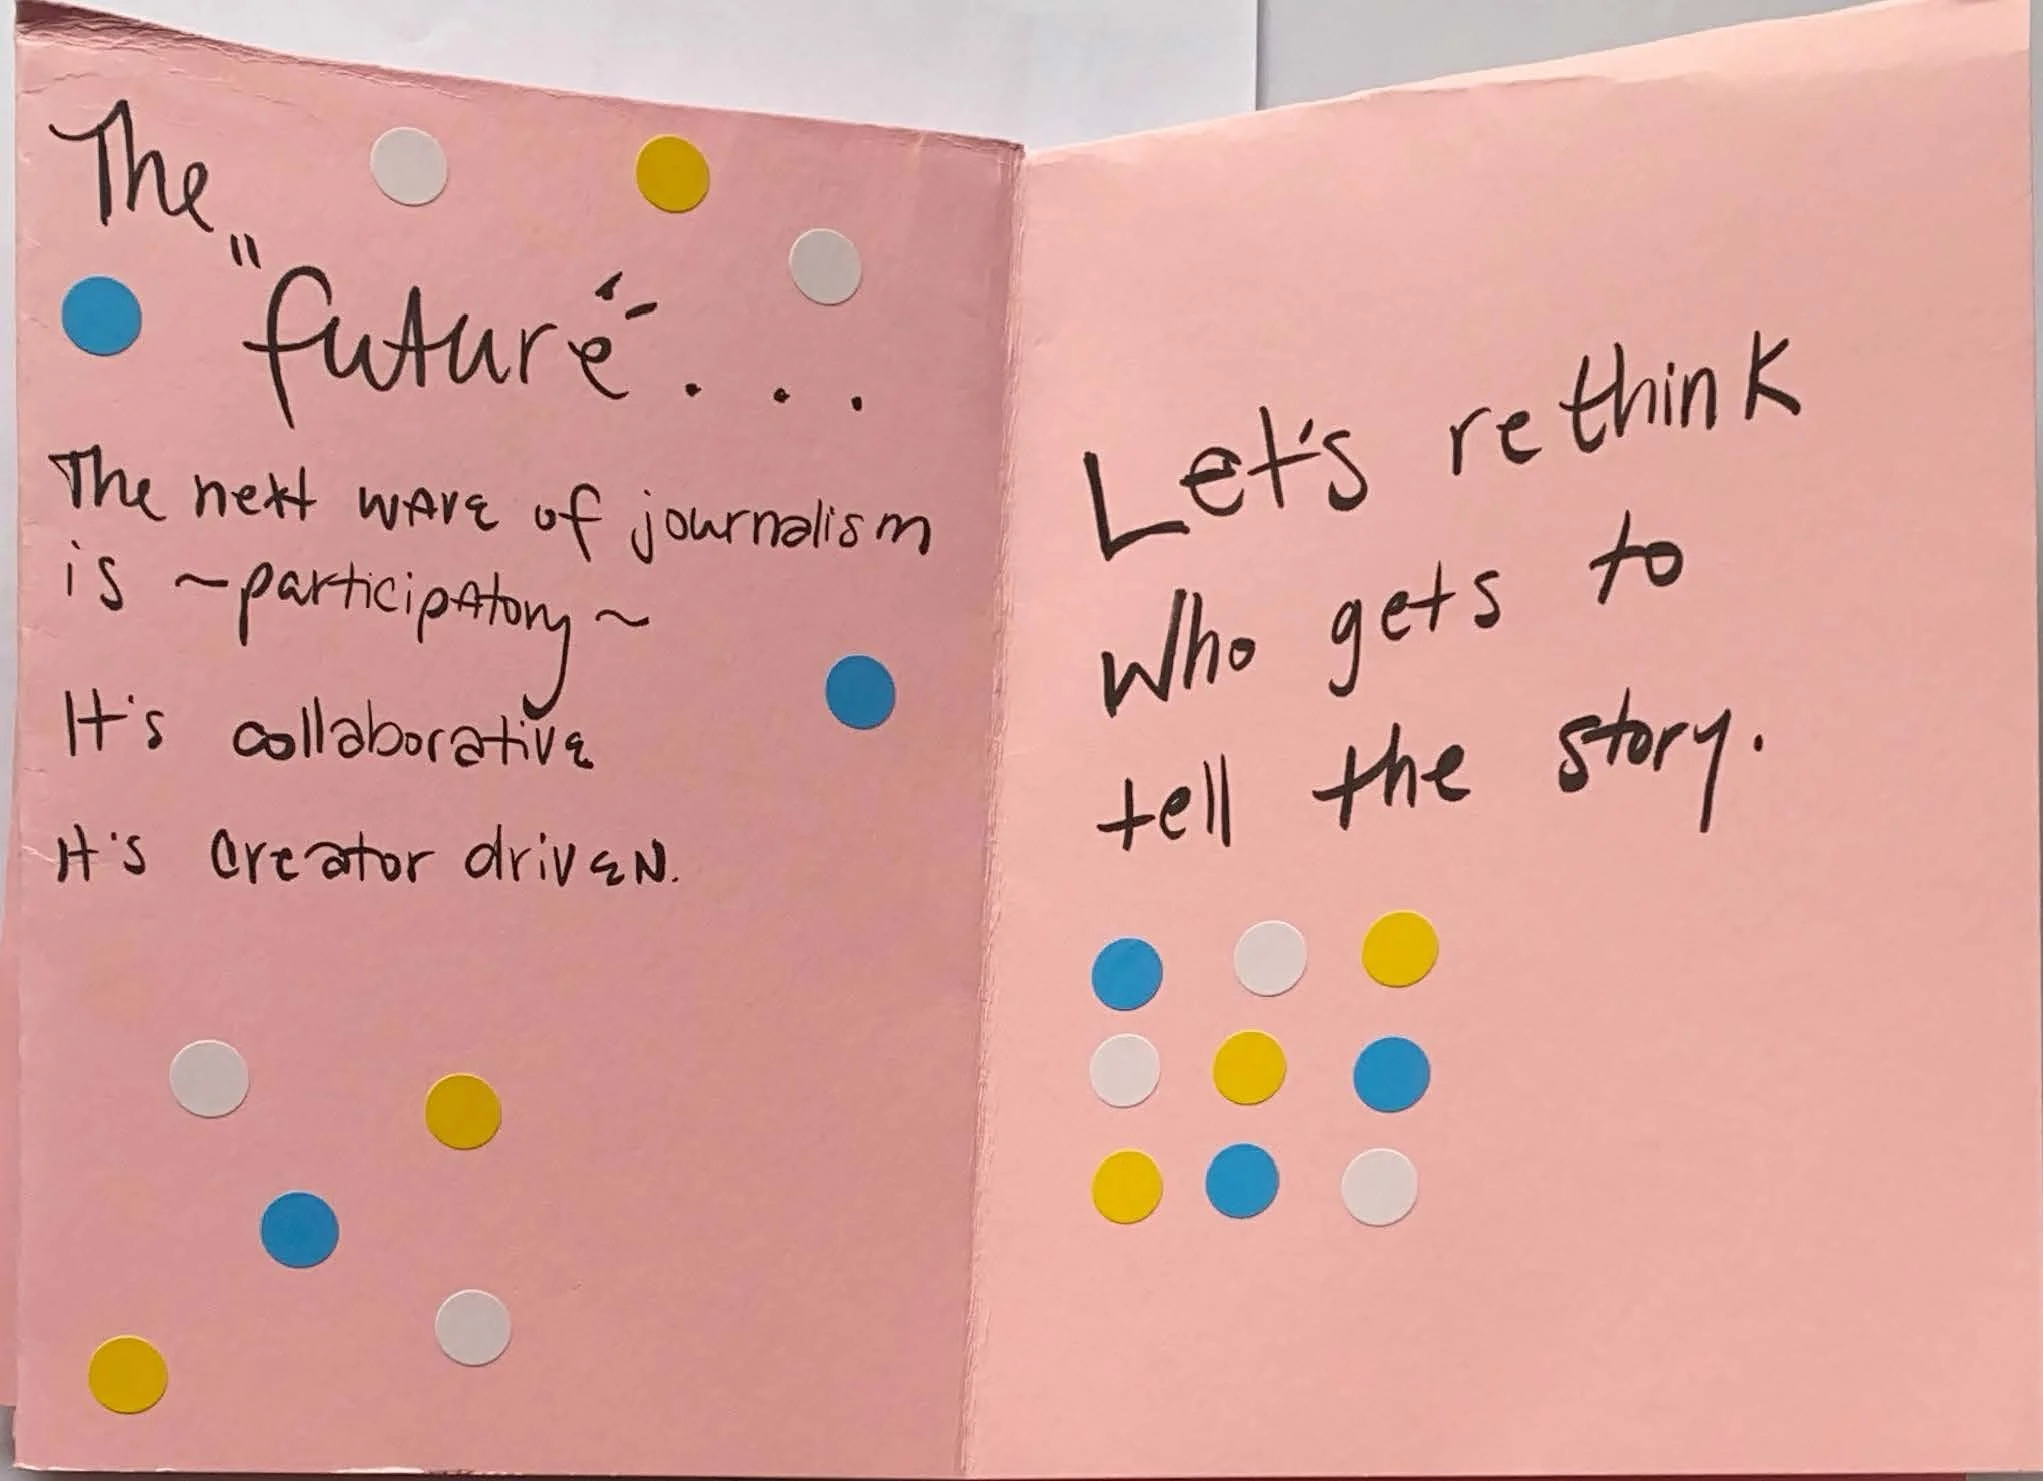 The
"future" . . .
The next wave of journalism
is ~participatory~
It's collaborative
It's creator driven.
Let's rethink
who gets to
tell the story.